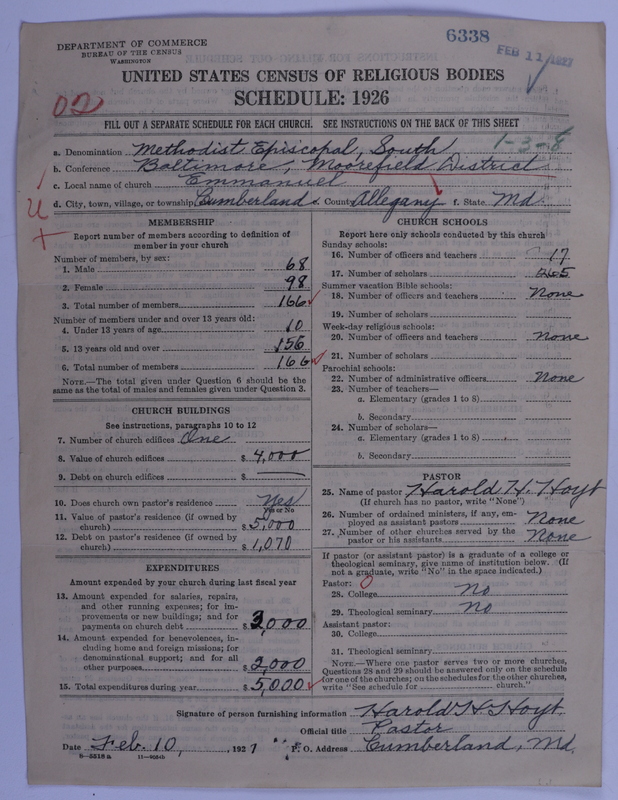 6338
FEB 11 1927
DEPARTMENT OF COMMERCE
BUREAU OF THE CENSUS
WASHINGTON
UNITED STATES CENSUS OF RELIGIOUS BODIES
SCHEDULE: 1926
02
FILL OUT A SEPARATE SCHEDULE FOR EACH CHURCH. SEE INSTRUCTIONS ON THE BACK OF THIS SHEET
1-3-8
a. Denomination Methodist Episcopal, South
b. Conference Baltimore, Moorefield District
c. Local name of church Emmanuel
d. City, town, village, or township Cumberland e. County Allegany f. State Md.
MEMBERSHIP
Report number of members according to definition of
member in your church
Number of members, by sex:
1. Male 68
2. Female 98
3. Total number of members 166
Number of members under and over 13 years old:
4. Under 13 years of age 10
5. 13 years old and over 156
6. Total number of members 166
NOTE.—The total given under Question 6 should be the
same as the total of males and females given under Question 3.
CHURCH BUILDINGS
See instructions, paragraphs 10 to 12
7. Number of church edifices One
8. Value of church edifices $ 4,000
9. Debt on church edifices $ —
10. Does church own pastor's residence Yes
Yes or No
11. Value of pastor's residence (if owned by
church) $ 5,000
12. Debt on pastor's residence (if owned by
church) $ 1,070
EXPENDITURES
Amount expended by your church during last fiscal year
13. Amount expended for salaries, repairs,
and other running expenses; for im-
provements or new buildings; and for
payments on church debt $ 3,000
14. Amount expended for benevolences, in-
cluding home and foreign missions; for
denominational support; and for all
other purposes $ 2,000
15. Total expenditures during year $ 5,000
CHURCH SCHOOLS
Report here only schools conducted by this church
Sunday schools:
16. Number of officers and teachers 17
17. Number of scholars 265
Summer vacation Bible schools:
18. Number of officers and teachers None
19. Number of scholars
Week-day religious schools:
20. Number of officers and teachers None
21. Number of scholars
Parochial schools:
22. Number of administrative officers None
23. Number of teachers—
a. Elementary (grades 1 to 8)
b. Secondary
24. Number of scholars—
a. Elementary (grades 1 to 8)
b. Secondary
PASTOR
25. Name of pastor Harold H. Hoyt
(If church has no pastor, write "None")
26. Number of ordained ministers, if any, em-
ployed as assistant pastors None
27. Number of other churches served by the
pastor or his assistants None
If pastor (or assistant pastor) is a graduate of a college or
theological seminary, give name of institution below. (If
not a graduate, write "No" in the space indicated.)
Pastor: 0
28. College No
29. Theological seminary No
Assistant pastor:
30. College
31. Theological seminary
NOTE.—Where one pastor serves two or more churches,
Questions 28 and 29 should be answered only on the schedule
for one of the churches; on the schedules for the other churches,
write "See schedule for church."
Signature of person furnishing information Harold H. Hoyt
Official title Pastor
Date Feb. 10, 1927 P. O. Address Cumberland, Md.
8—5518a 11—9054b